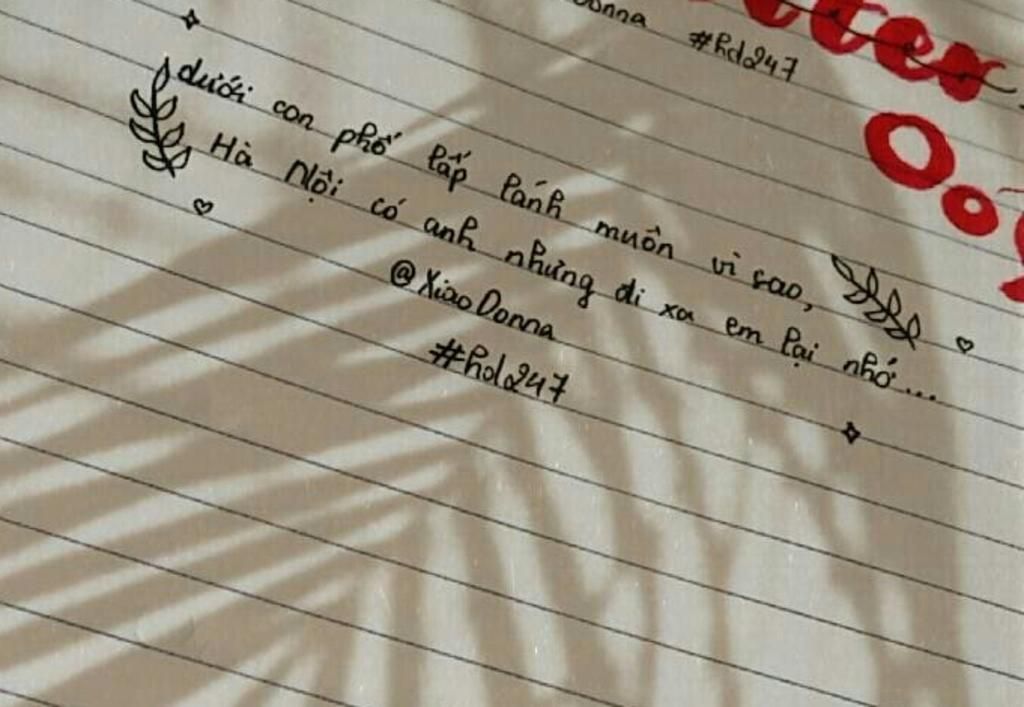 onna
#hd247
dưới con phố lấp lánh muôn vì sao,
Hà Nội có anh nhưng đi xa em lại nhớ...
@XiaoDonna
#hd247